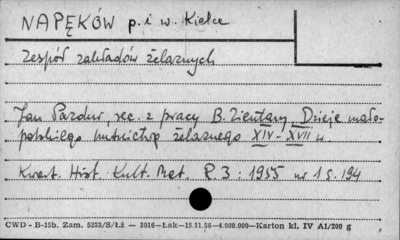 NAPĘKÓW p. i w. Kielce
zespół zakładów żelaznych
Jan Pazdur, rec. z pracy B. Zientary, Dzieje mało-
polskiego hutnictwa żelaznego XIV-XVII w
Kwart. Hist. Kult. Mat. R. 3 : 1955 nr 1 s. 194
CWD - B-15b. Zam. 5223/S/Łś — 3016—Łak—15.11.56—4.000.000—Karton kl. IV A1/200 g